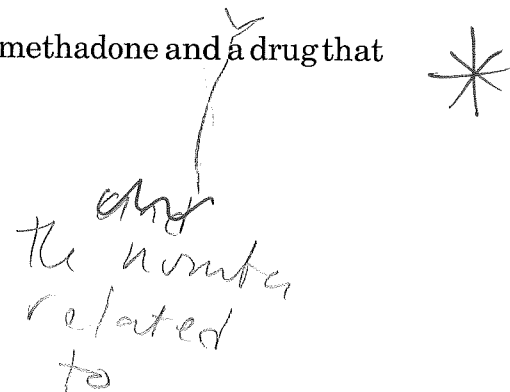 methadone and a drug that
and
the number
related
to